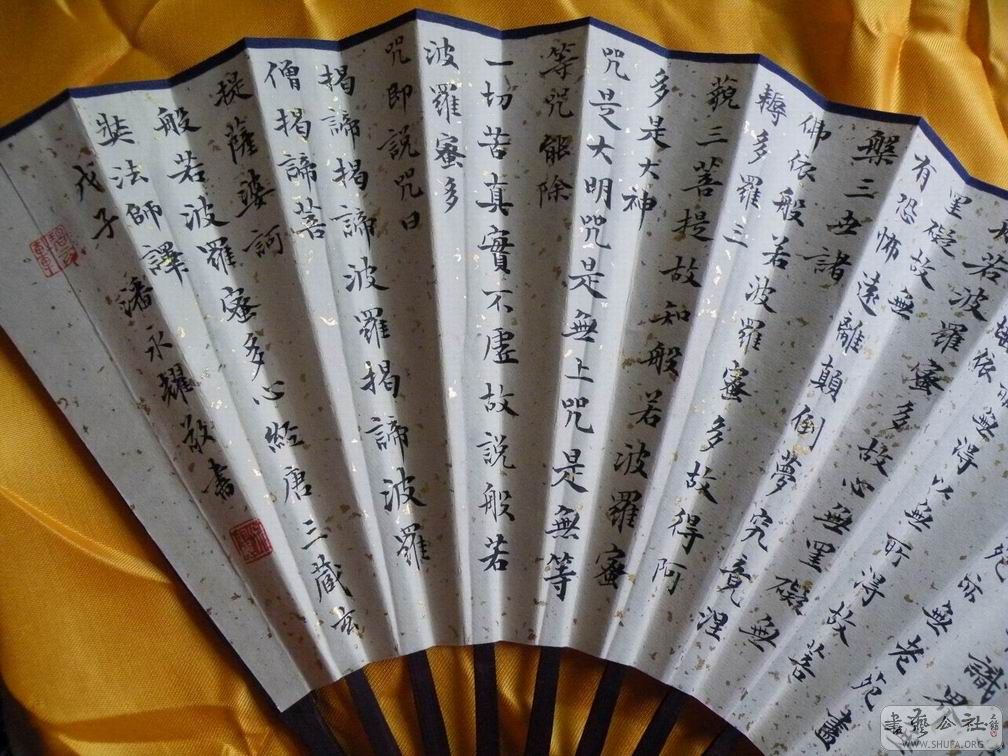 識界
死亦無老死盡
無得以無所得故菩
埵依
若波羅蜜多故心無罣礙無
罣礙故無
有恐怖遠離顛倒夢究竟涅
槃三世諸
佛依般若波羅蜜多故得阿
耨多羅三
藐三菩提故知般若波羅蜜
多是大神
咒是大明咒是無上咒是無等
等咒能除
一切苦真實不虛故說般若
波羅蜜多
咒即說咒曰
揭諦揭諦波羅揭諦波羅
僧揭諦菩
提薩婆訶
般若波羅蜜多心經唐三藏玄
奘法師譯
戊子
潘永耀敬書
書藝公社
WWW.SHUFA.ORG